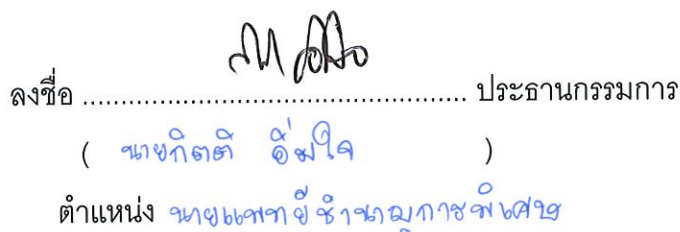 ลงชื่อ ................................................ ประธานกรรมการ
( นายกิตตี อิ่มใจ )
ตำแหน่ง นายแพทย์ชำนาญการพิเศษ